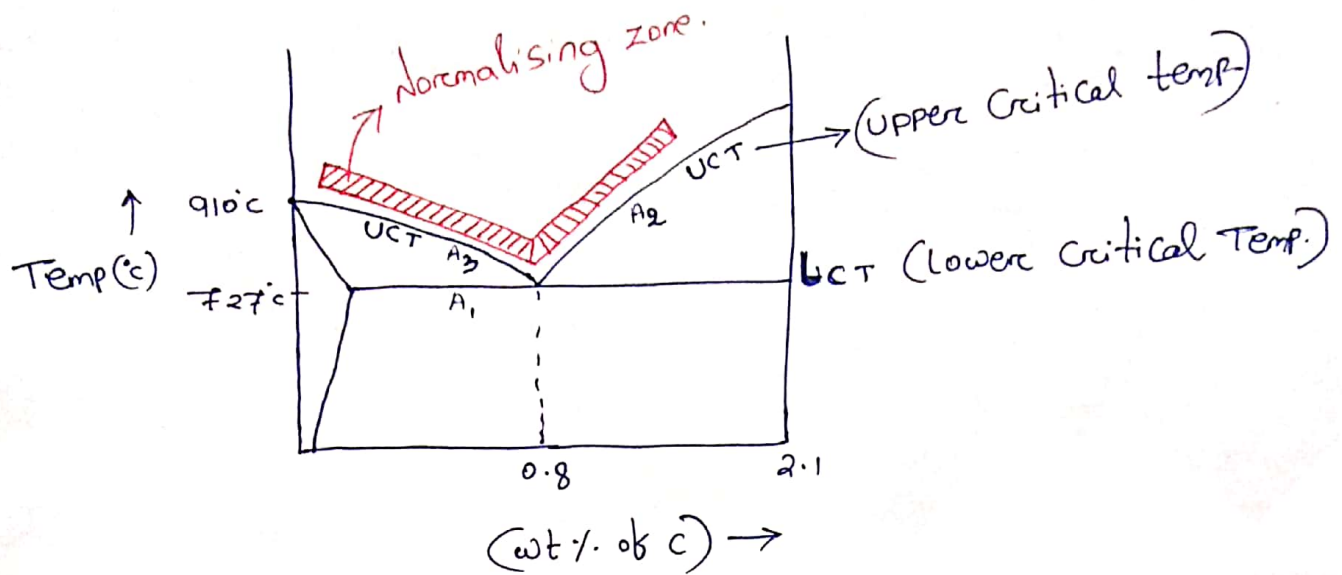 Normalising zone.
UCT → (Upper Critical temp)
910°C
UCT
A3
A2
↑
Temp(°c)
727°c
A1
LCT (Lower Critical Temp.)
0.8
2.1
(wt % of c) →